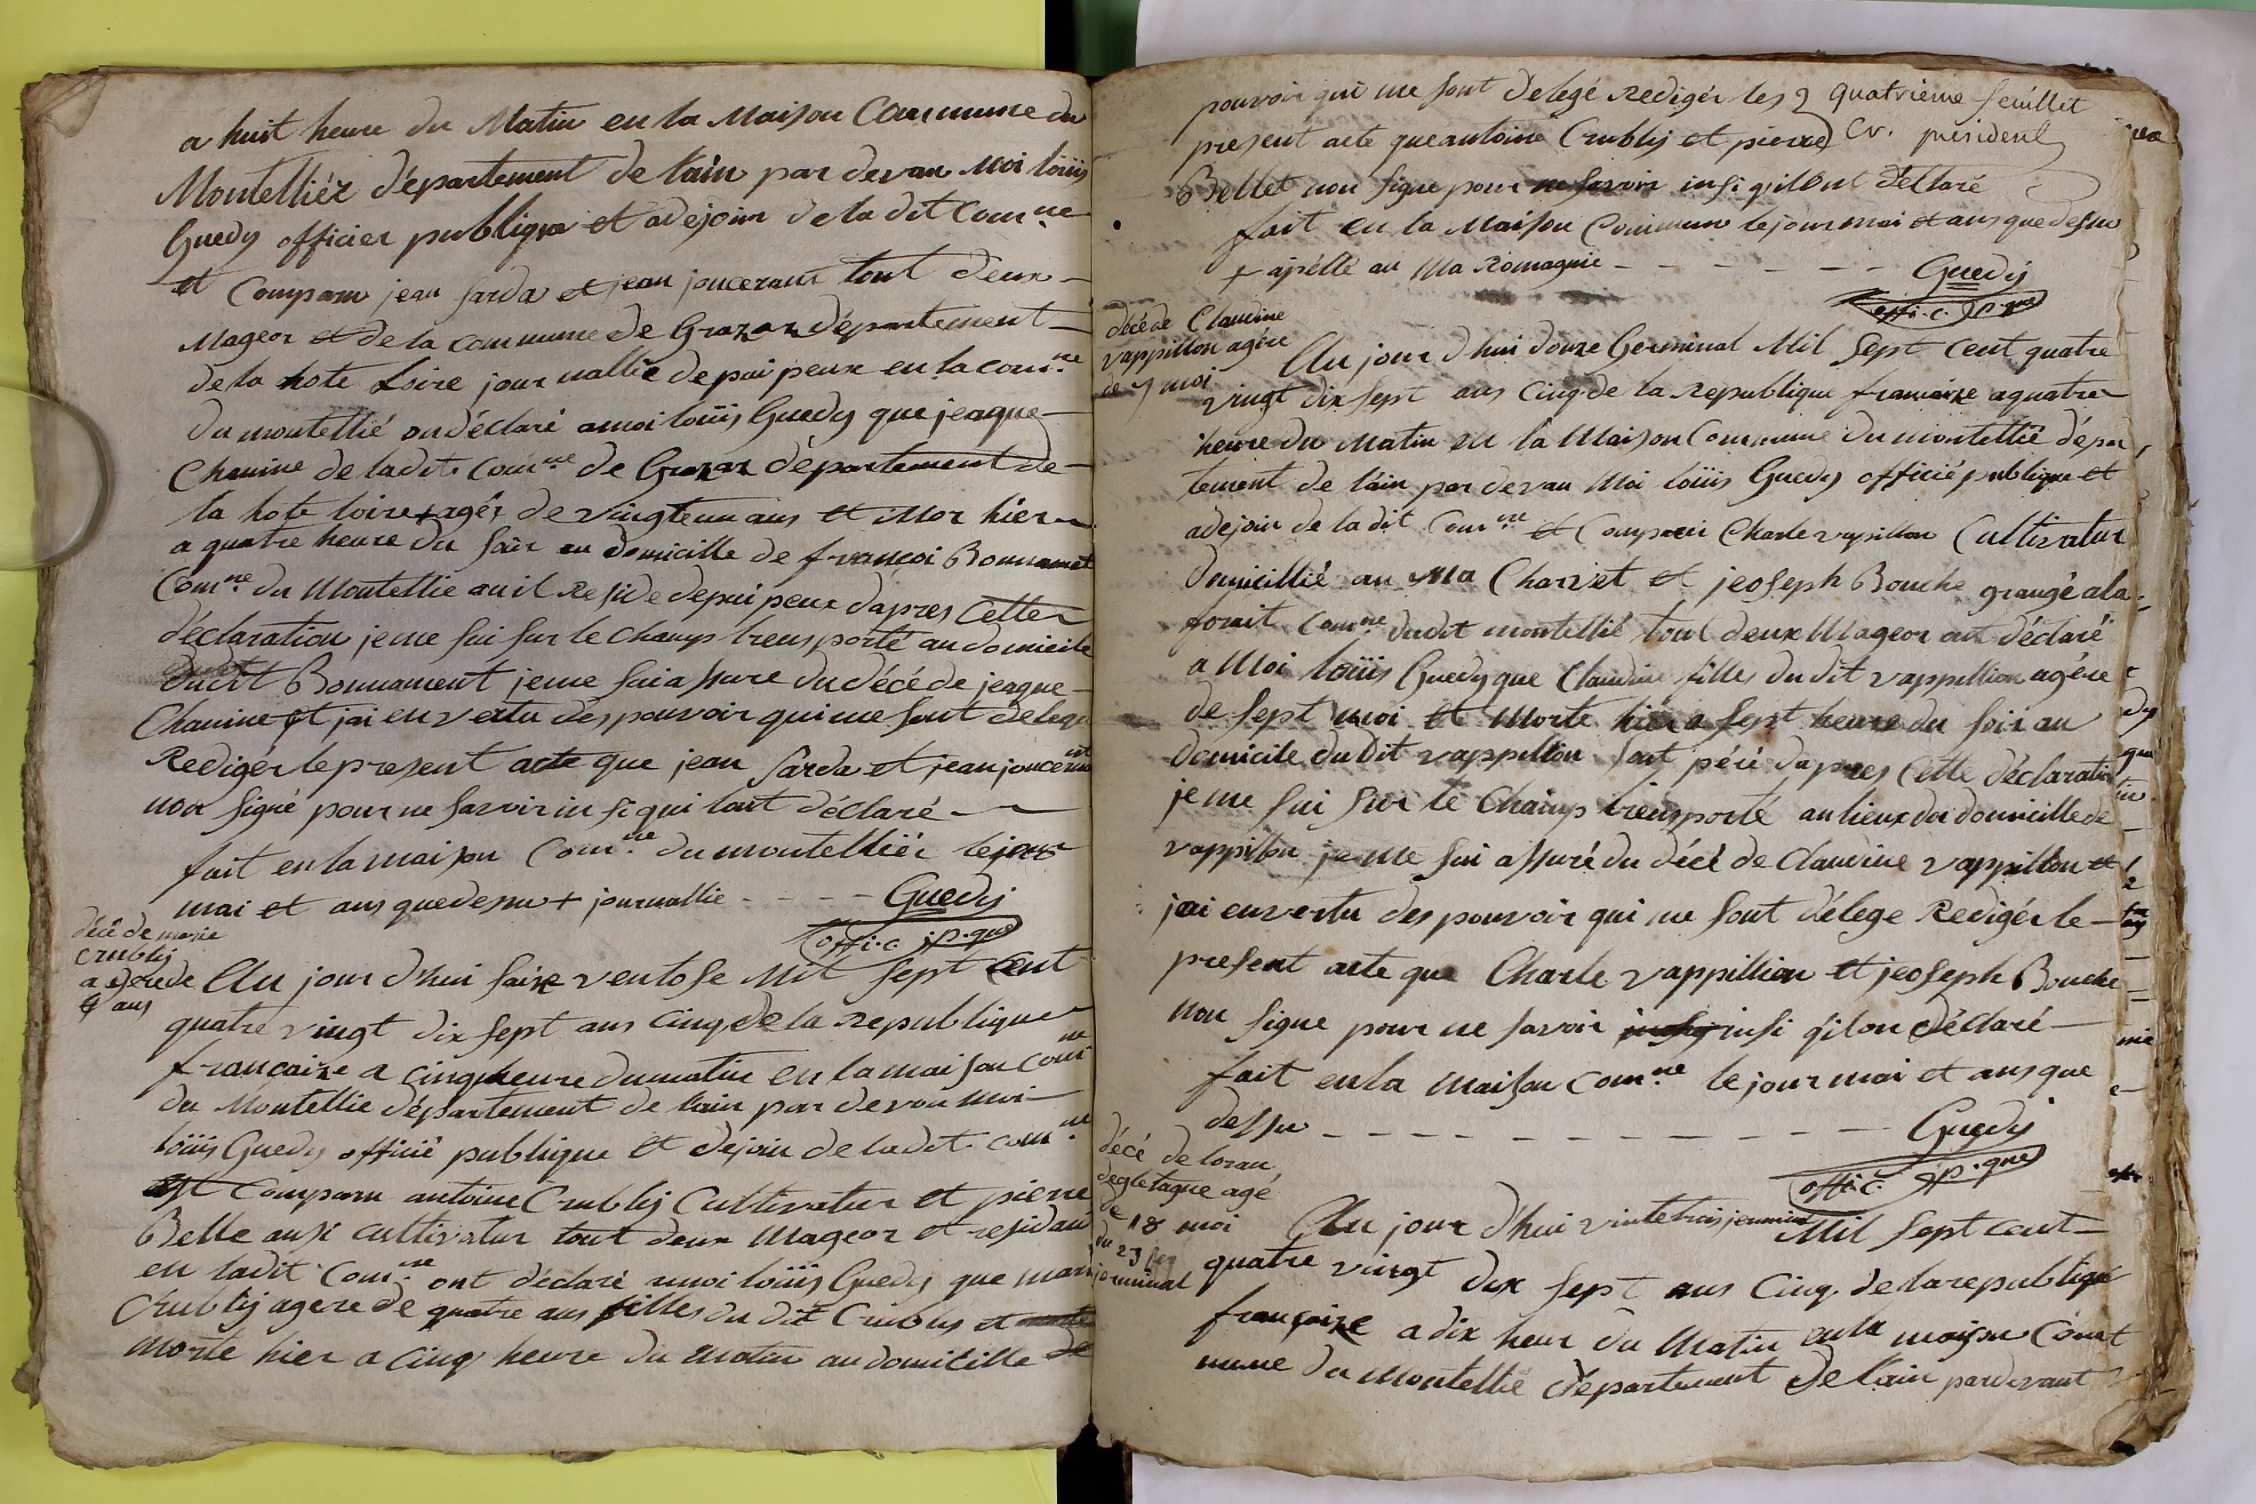 a huit heure du Matin en la Maison Commune du
Montelliér département de lain par devan Moi loüis
Guedy officier publique et adejoin de la dit Com.ne
et Comparu jean sarda et jean joucerant tout deux
Mageor et de la commune de Grazaz département
de la hote Loire journallie depui peux en la com.ne
du montellié on déclaré a moi loüis Guedy que jeaque
Chanine de la dit Com.ne de Grazaz département de
la hote loire + agér de vingt un ans et Mor hier
a quatre heure du sair au domicille de françoi Bonnament
Com.ne du Montellie ou il Reside depui peux dapres cette
déclaration je me sui sur le champ trensporté au domicile
dudit Bonnament je me sui assure du décé de jeaque
Chanine et jai en vertu des pouvoir qui me sont delegu
Redigér le present acte que jean sarda et jean joucerant
non signé pour ne savoir insi qui lont déclaré
fait en la maison Com.ne du montelliér le jour
mai et ans que desu + journallie - - - - Guedy
offi.c. p.que
décé de marie
Crubly
agere de
4 ans
Au jour d'hui saize ventose Mil sept Cent
quatre vingt dix sept ans cinq de la Republique
francaize a cinq heure du matin en la maison Com.ne
du Montellie département de lain par devan moi
loüis Guedy officié publique et dejoin de la dit com.ne
est Comparu antoine Crubly Cultivatur et pierre
Belle ausi cultivatur tout deux Mageor et residant
en ladit Com.ne ont déclaré a moi loüis Guedy que mari
Crubly agere de quatre ans filles du dit Crubly et
morte hier a cinq heure du matin au domicille de
pouvoir qui me sont delegé Redigér les
present acte que antoine Crubly et pierre
Bellet non signe pour ne savoir insi qil ont déclaré
fait en la Maison Commune le jour mai et ans que desu
+ apélle au Ma Romagnie - - - - - - Guedy
offi.c. p.que
quatrieme feuillet
Cr. president
décé de Claudine
vappillon agére
de 7 moi
Au jour d'hui douze Germinal Mil sept cent quatre
vingt dix sept ans Cinq de la republique francaize a quatre
heure du Matin en la Maison Commune du montellié dépar
tement de lain par devan Moi loüis Guedy officié publique et
adejoin de la dit Com.ne et Comparu Charle vapillon Cultivatur
domicillié au Ma Charvet et jeoseph Bouche grangé a la
forait Com.ne dudit montellié tout deux Mageor ont déclaré
a Moi loüis Guedy que Claudine filles du dit vappillion agére
de sept moi et Morte hier a sept heure du soir au
domicile du dit vappillon sont péré dapres Cette déclaration
je me sui sur le Champ trensporté au lieux du domicille de
vappillon je me sui assuré du décé de Claudine vappillon et
jai en vertu des pouvoir qui me sont délege Redigér le
present acte que Charle vappillion et jeoseph Bouche
non signe pour ne savoir insi qil on déclaré
fait en la Maison Com.ne le jour mai et ans que
dessu - - - - - - - - - - Guedy
offi.c. p.que
décé de loran
degletagne agé
de 18 moi
du 23
jerminal
Au jour d'hui vinte trois jerminal Mil sept cent
quatre vingt dix sept ans Cinq de la republique
françaize a dix heur du Matin en la maison Com
mune du Montellié département de lain pardevant